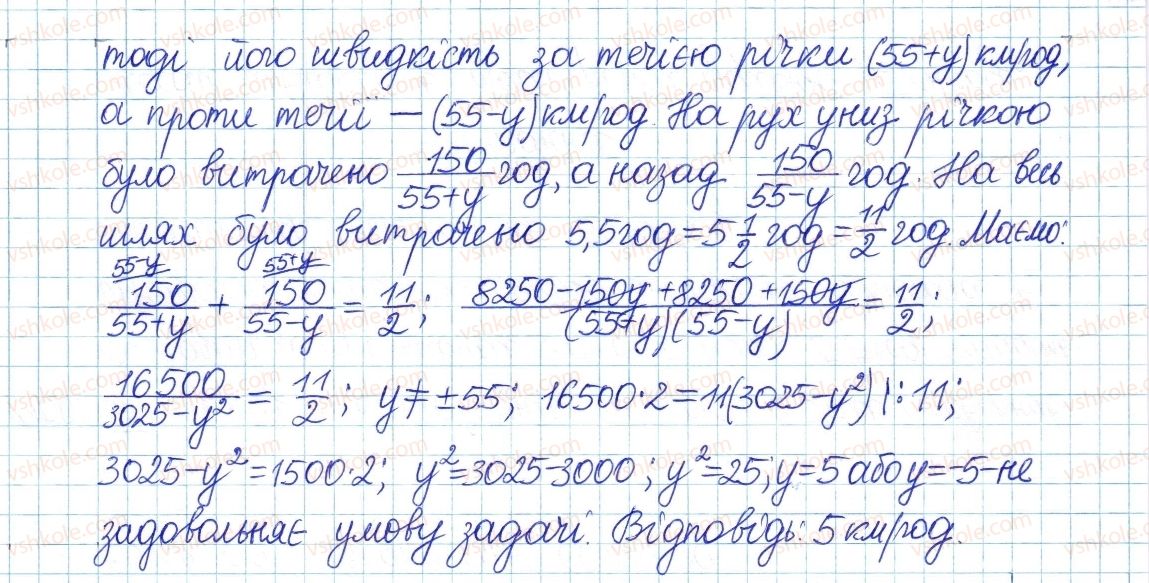 тоді його швидкість за течією річки (55+y) км/год,
а проти течії — (55-y) км/год. На рух униз річкою
було витрачено 150/(55+y) год, а назад 150/(55-y) год. На весь
шлях було витрачено 5,5 год = 5 1/2 год = 11/2 год. Маємо:
55-y 55+y
150/(55+y) + 150/(55-y) = 11/2; (8250-150y+8250+150y)/((55+y)(55-y)) = 11/2;
16500/(3025-y²) = 11/2; y≠±55; 16500·2=11(3025-y²) |:11;
3025-y²=1500·2; y²=3025-3000; y²=25; y=5 або y=-5-не
задовольняє умову задачі. Відповідь: 5 км/год.